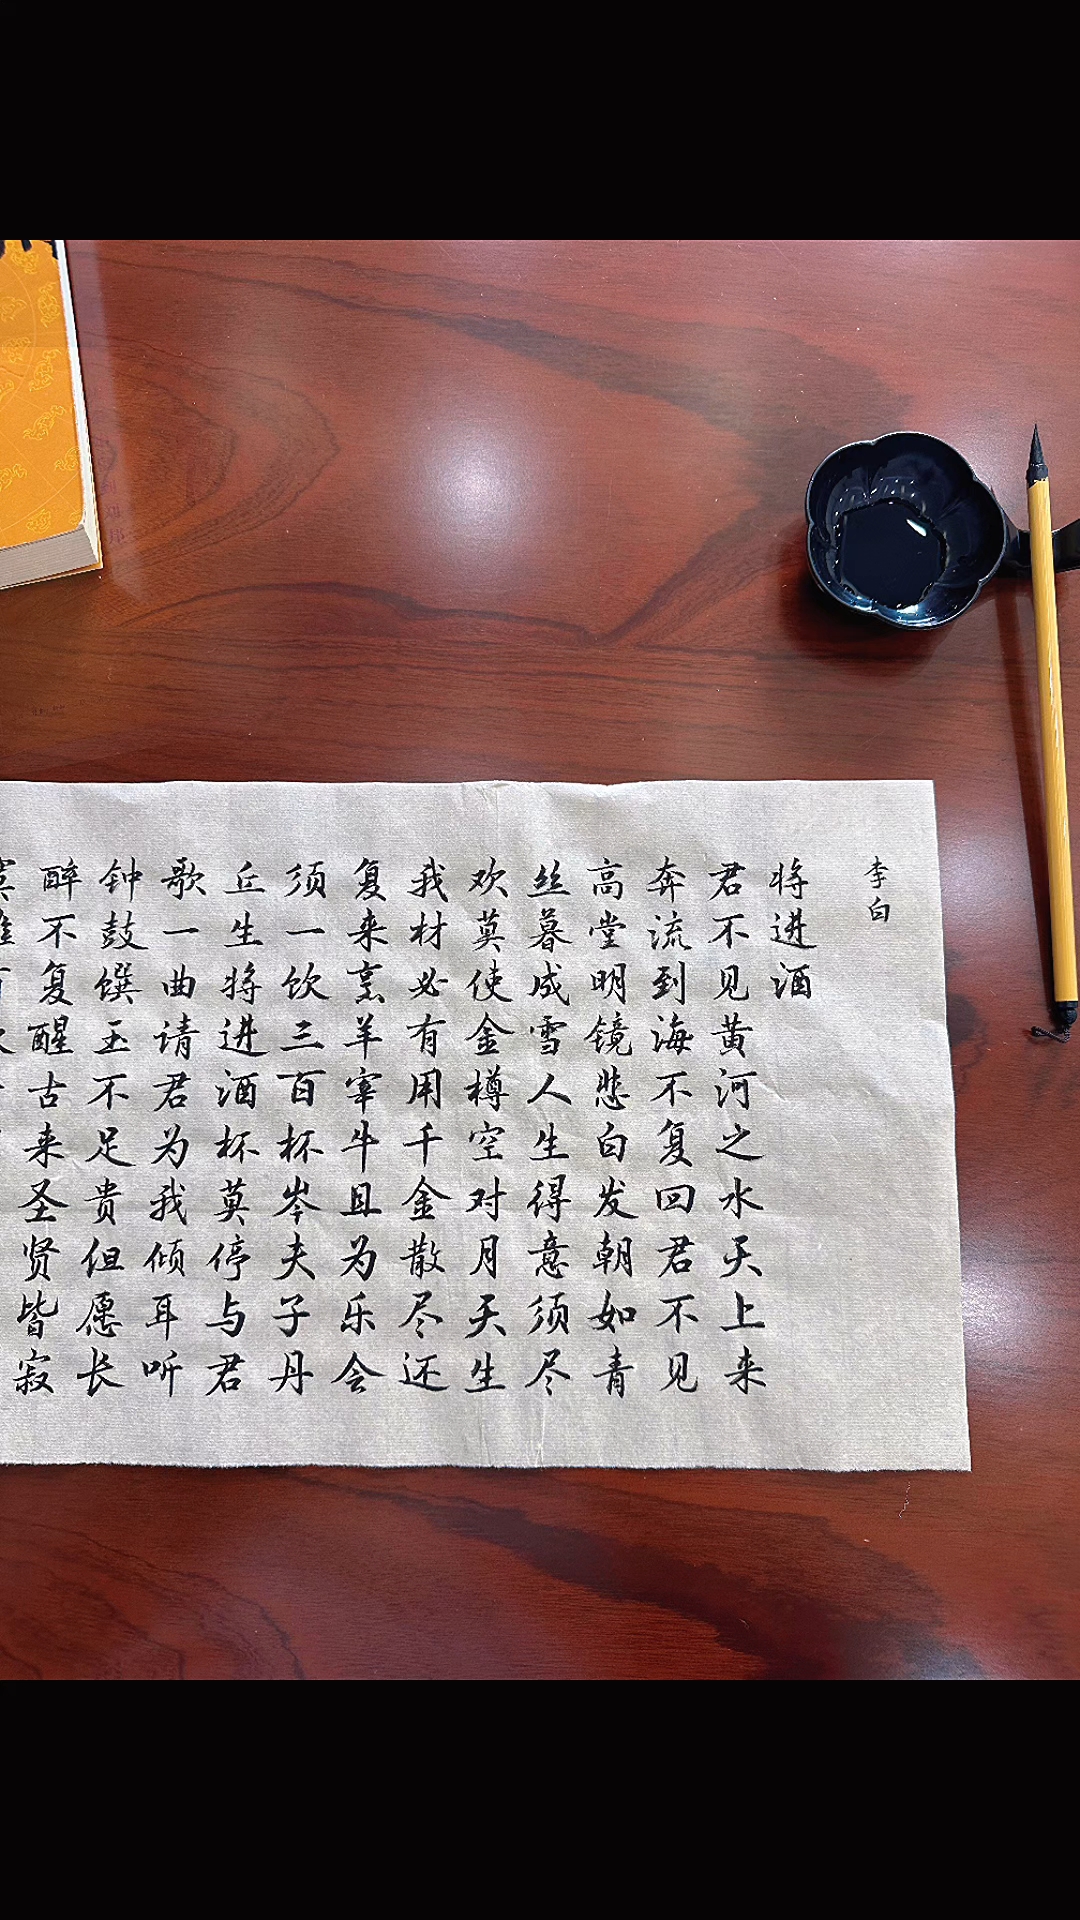 李白
将进酒
君不见黄河之水天上来
奔流到海不复回君不见
高堂明镜悲白发朝如青
丝暮成雪人生得意须尽
欢莫使金樽空对月天生
我材必有用千金散尽还
复来烹羊宰牛且为乐会
须一饮三百杯岑夫子丹
丘生将进酒杯莫停与君
歌一曲请君为我倾耳听
钟鼓馔玉不足贵但愿长
醉不复醒古来圣贤皆寂